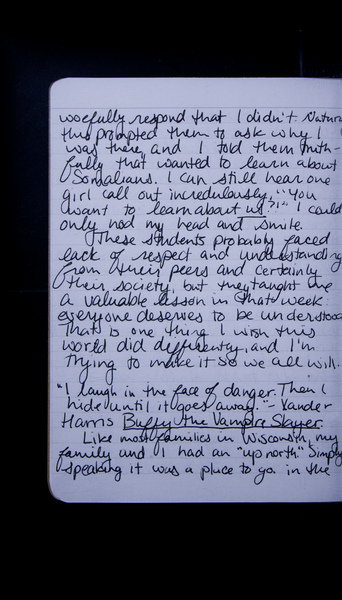 woefully respond that I didn't. Natura
this prompted them to ask why I
was there, and I told them truth-
fully that wanted to learn about
Somalians. I can still hear one
girl call out incredulously, "You
want to learn about us?!" I could
only nod my head and smile.
These students probably faced
lack of respect and understanding
from their peers and certainly
their society, but they taught me
a valuable lesson in that week:
everyone deserves to be understood
That is one thing I wish this
world did differently, and I'm
trying to make it so we all will.
"I laugh in the face of danger. Then I
hide until it goes away." - Xander
Harris Buffy the Vampire Slayer.
Like most families in Wisconsin, my
family and I had an "up north." Simply
speaking it was a place to go in the